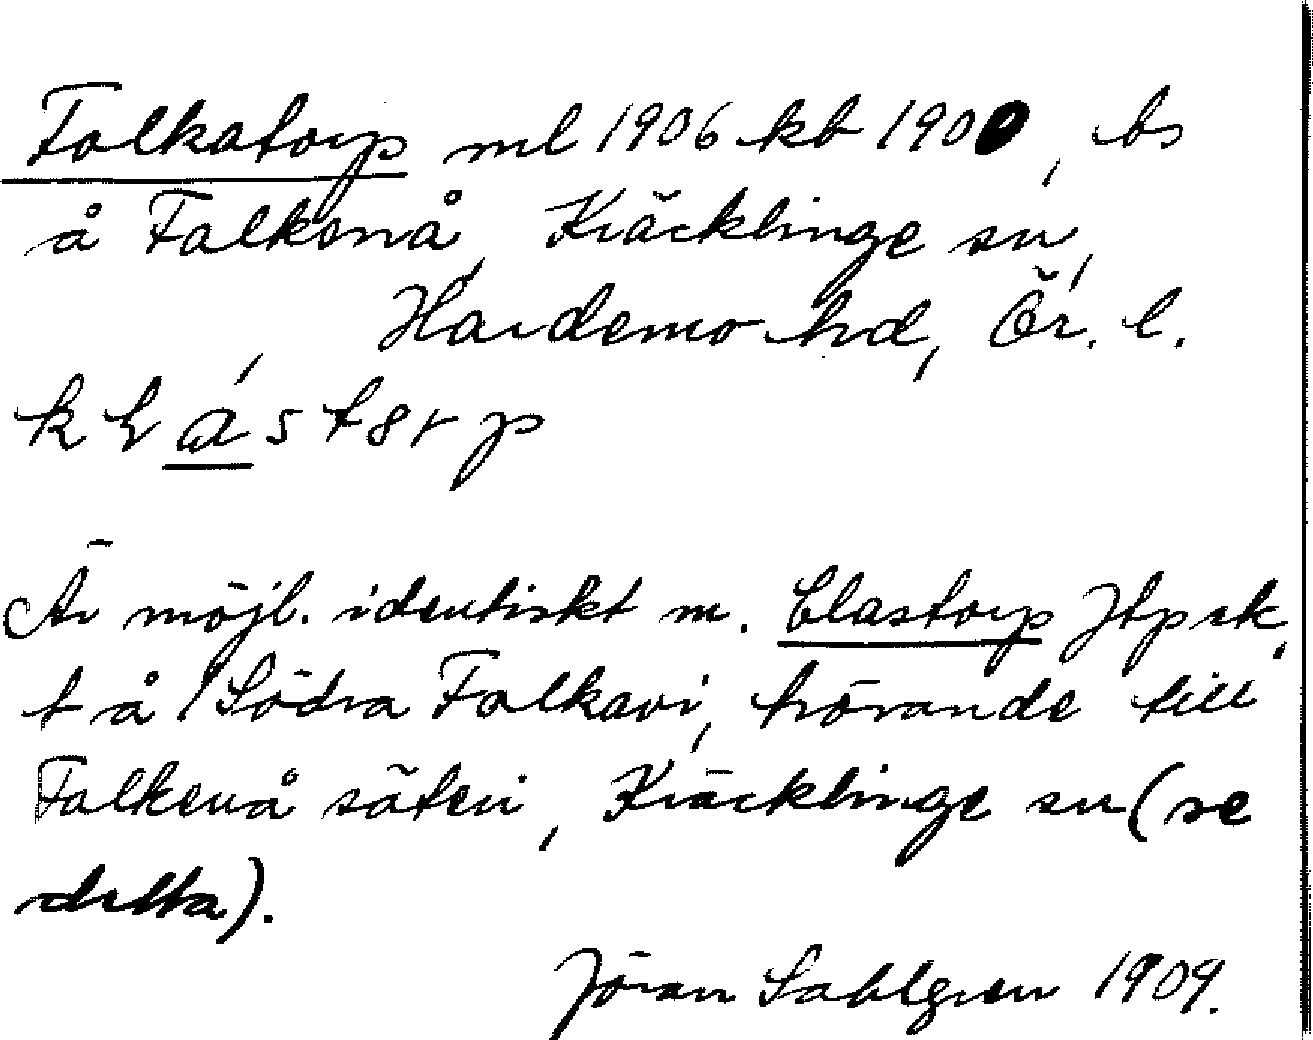 Falkatorp ml 1906 kb 1900, bs
å Falkenå, Kräcklinge sn,
Hardemo hd, Ör. l.
Är möjl. identiskt m. Clastorp Jtpsk,
t å /Södra Falkavi, hörande till
Falkenå säteri, Kräcklinge sn (se
detta).
Jöran Sahlgren 1909.